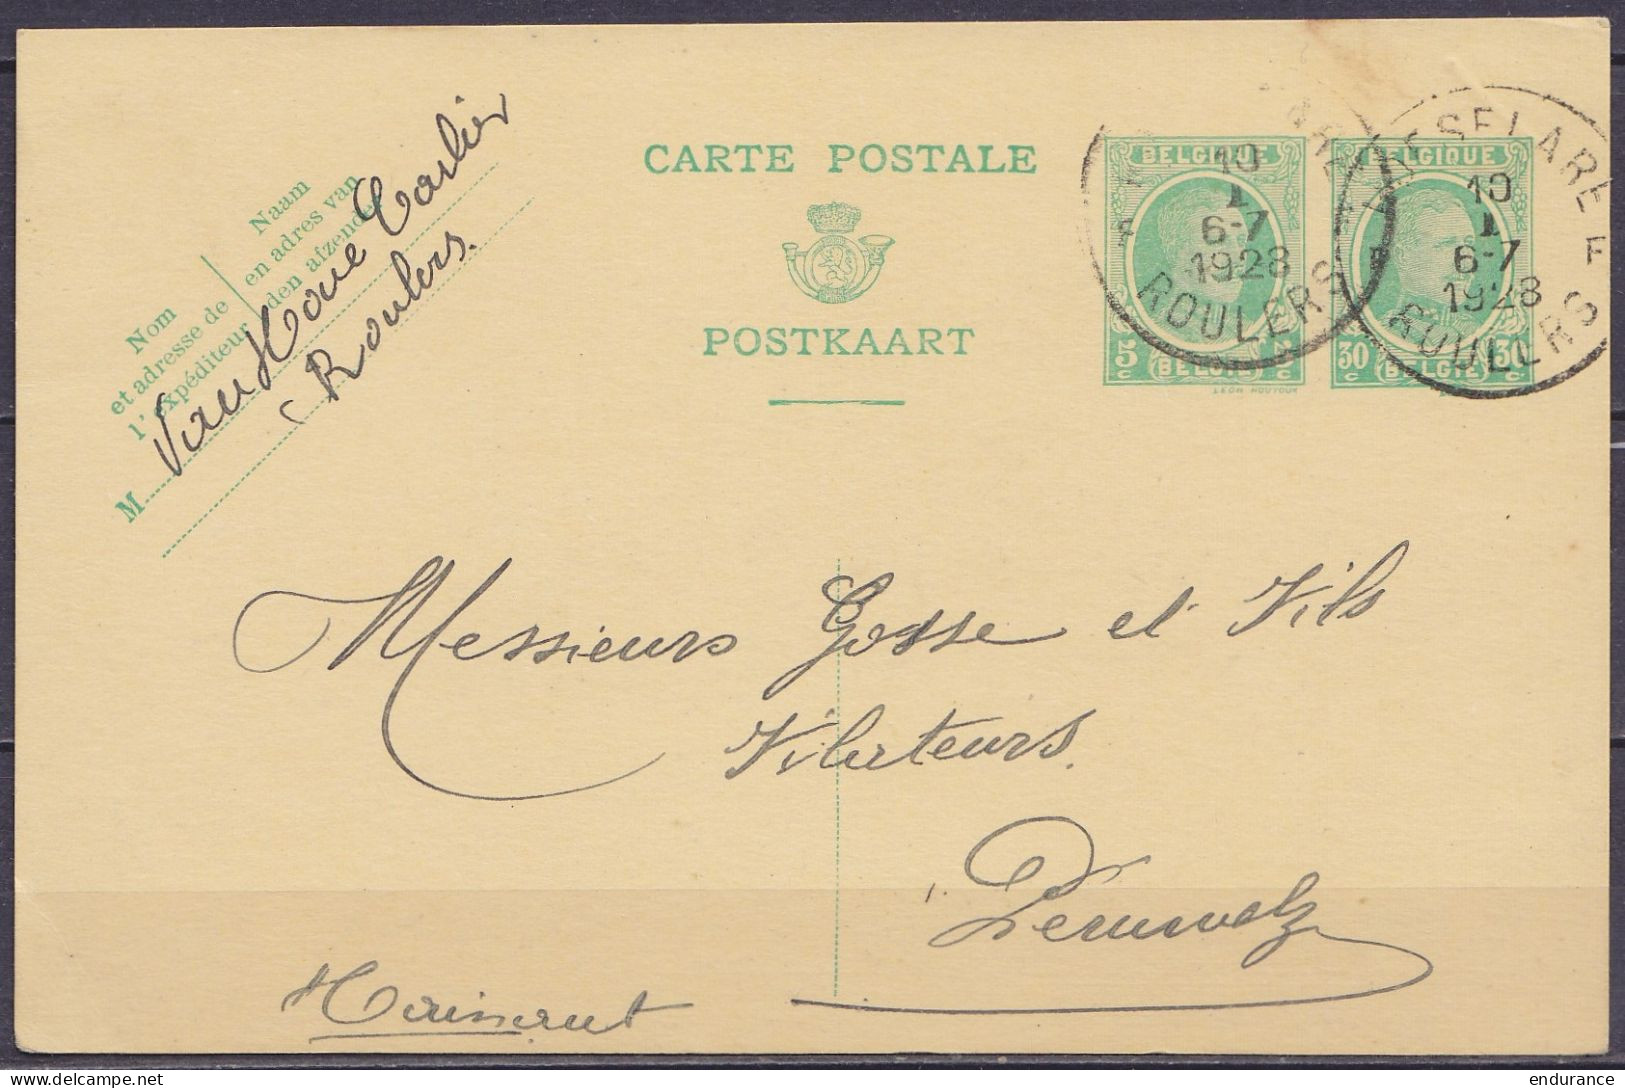 CARTE POSTALE
POSTKAART
Naam
en adres van
den afzender
Nom
et adresse de
l'expéditeur
M
Van Hove Carlier
Roulers.
BELGIQUE
5 c
BELGIË
LÉON HOUYOUX
10
I
6-7
1928
ROULERS
F
BELGIQUE
30 c 30 c
BELGIË
ROESELARE
10
I
6-7
1928
ROULERS
E
Messieurs Gosse et Fils
Filateurs.
Peruwelz
Hainaut
endurance